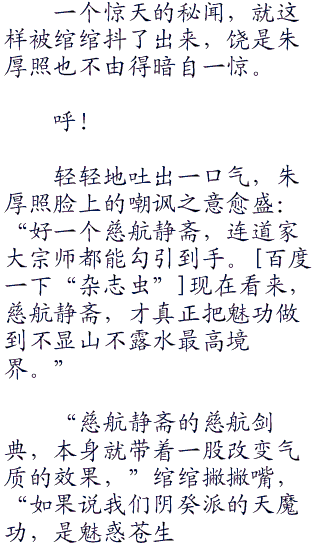 一个惊天的秘闻，就这
样被绾绾抖了出来，饶是朱
厚照也不由得暗自一惊。
呼！
轻轻地吐出一口气，朱
厚照脸上的嘲讽之意愈盛：
“好一个慈航静斋，连道家
大宗师都能勾引到手。[百度
一下“杂志虫”]现在看来，
慈航静斋，才真正把魅功做
到不显山不露水最高境
界。”
“慈航静斋的慈航剑
典，本身就带着一股改变气
质的效果，”绾绾撇撇嘴，
“如果说我们阴癸派的天魔
功，是魅惑苍生